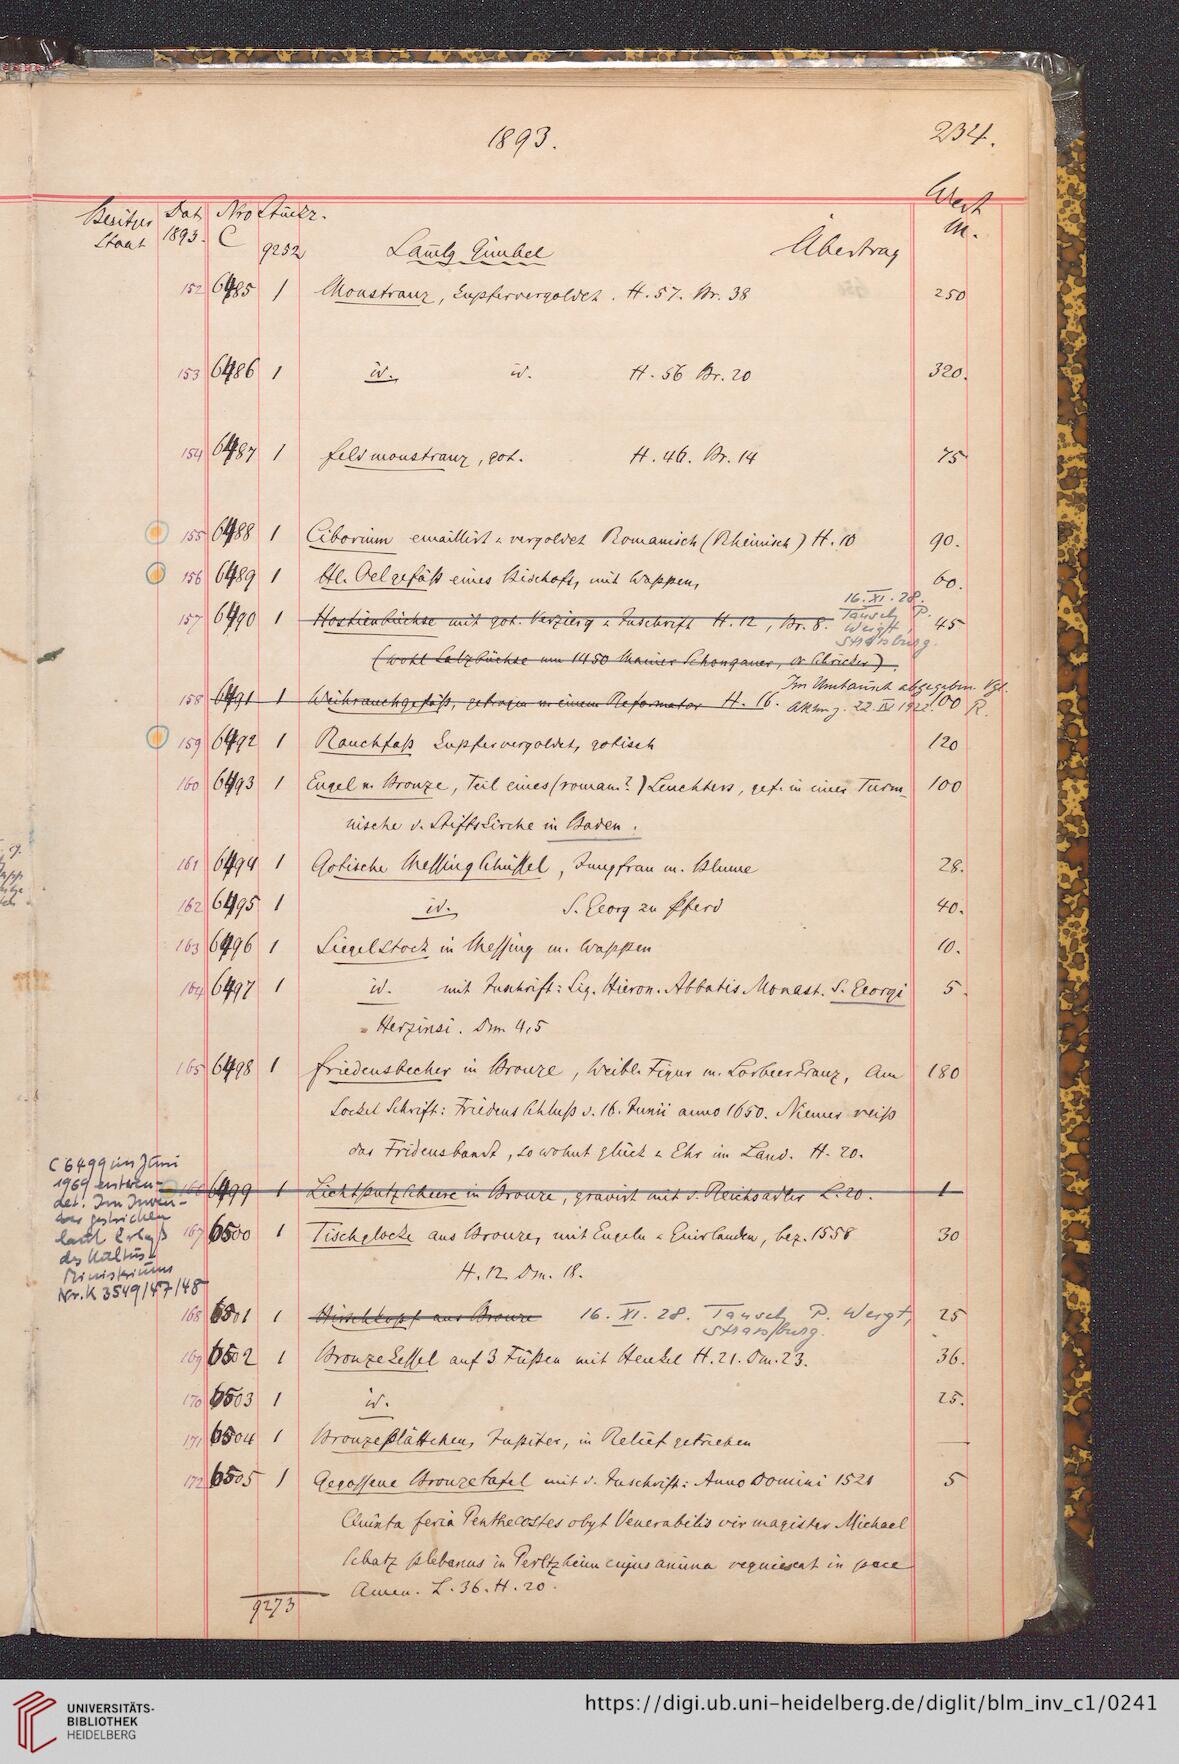 1893.
234.
Besitzer Dat. Nro Stückz. Wert
Staat 1893. C M.
9252 Samlg Gimbel Übertrag
152 6485 1 Monstranz, kupfervergoldet. H. 57. Br. 38 250
153 6486 1 id. id. H. 56 Br. 20 320.
154 6487 1 Feldmonstranz, got. H. 46. Br. 14 75
155 6488 1 Ciborium emaillirt u. vergoldet Romanisch (Rheinisch) H. 10 90.
156 6489 1 Hl. Oelgefäß eines Bischofs, mit Wappen, 60.
16. XI. 28.
157 6490 1 Hostienbüchse mit got. Verzierg u. Inschrift H. 12, Br. 8. Tausch P. 45
Weigt,
Strassburg.
(wohl Salzbüchse um 1450 Mainzer Schongauer, Schrieder).
Im Umtausch abgegeben. Vgl.
158 6491 1 Weihrauchgefäß, getragen v. einem Reformator H. 16. 22. IX 1922. 100 R.
159 6492 1 Rauchfaß kupfervergoldet, gotisch 120
160 6493 1 Engel v. Bronze, Teil eines (roman.?) Leuchters, gef. in einer Turm- 100
nische d. Stiftskirche in Baden.
161 6494 1 Gotische Messingschüssel, Jungfrau m. Blume 28.
162 6495 1 id. S. Georg zu Pferd 40.
163 6496 1 Siegelstock in Messing m. Wappen 10.
164 6497 1 id. mit Inschrift: Sig. Hieron. Abbatis Monast. S. Georgi 5.
Herzinsi. Dm 4,5
165 6498 1 Friedensbecher in Bronze, Weibl. Figur m. Lorbeerkranz, Am 180
Sockel Schrift: Friedens Schluß v. 16. Junii anno 1650. Niemer reiß
das Fridensbandt, so wohnt glück u. Ehr im Land. H. 20.
C 6499 im Juni
1969 entwen-
det. Im Inven-
tar gestrichen
laut Erlaß
des Kultus-
Ministeriums
Nr. K 3549/47/48
166 6499 1 Lichtputzscheere in Bronze, gravirt mit d. Reichsadler L. 20. 1
167 6500 1 Tischglocke aus Bronze, mit Engeln u. Guirlanden, bez. 1558 30
H. 12 Dm. 18.
168 6501 1 Hirschkopf aus Bronze 16. XI. 28. Tausch P. Weigt, 25
Strassburg.
169 6502 1 Bronzekessel auf 3 Füßen mit Henkel H. 21. Dm. 23. 36.
170 6503 1 id. 25.
171 6504 1 Bronzeplättchen, Jupiter, in Relief getrieben —
172 6505 1 Gegossene Bronzetafel mit d. Inschrift: Anno Domini 1521 5
Quinta feria Penthecostes obyt Venerabilis vir magister Michael
Schatz plebanus in Perltzheim cujus anima requiescat in pace
Amen. L. 36. H. 20.
9273
UNIVERSITÄTS-
BIBLIOTHEK
HEIDELBERG
https://digi.ub.uni-heidelberg.de/diglit/blm_inv_c1/0241